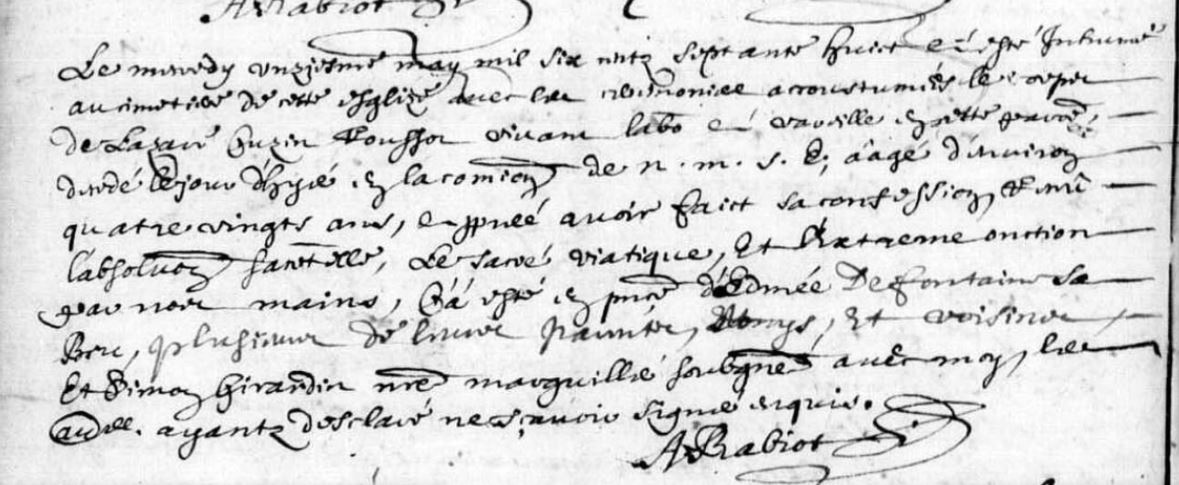 A Rabiot
Le mercredy unziesme may mil six centz septante huict a esté Inhumé
au cimetiere de cette esglize avec les ceremonies accoustumées le corps
de Lazare vivant labo en cette parr.
decedé le jour d'hyer en la comion de n. m. s. E, aagé d'environ
quatre vingts ans, apres avoir faict sa confession,
l'absoluon, Le sacré viatique, Et l'Extreme onction
par nos mains, Ce a esté en pnce d'Edmée De fontaine sa
plusieurs de leurs parents, amys, Et voisins,
Et Simon Girardin nre marguillié soubsigné avec moy, les
autres ayantz desclaré ne sçavoir signé enquis.
A Rabiot